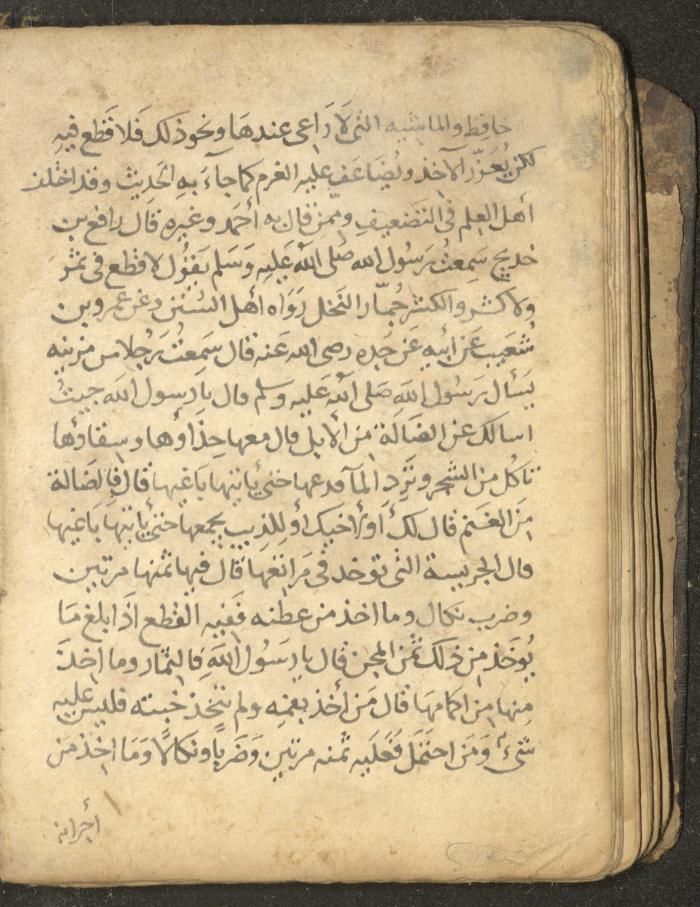 حافظ والماشيه التي لا راعي عندها ونحو ذلك فلا قطع فيه
لكن يعزر الآخذ ويضاعف عليه الغرم كما جآء به الحديث وقد اختلف
أهل العلم في التضعيف وممن قال به أحمد وغيره قال رافع بن
خديج سمعت رسول الله صلى الله عليه وسلم يقول لا قطع في ثمر
ولا كثر والكثر جمار النخل رواه أهل السنن وعن عمرو بن
شعيب عن أبيه عن جده رضي الله عنه قال سمعت رجلا من مزينه
يسأل رسول الله صلى الله عليه وسلم قال يا رسول الله جيت
اسالك عن الضالة من الابل قال معها حذاؤها وسقاؤها
تاكل من الشجر وترد المآ فدعها حتى يأتيها باغيها قال فالضالة
من الغنم قال لك أو لأخيك أو للذيب يجمعها حتى يأتيها باغيها
قال الحريسة التي توخد في مراتعها قال فيها ثمنها مرتين
وضرب نكال وما اخذ من عطنه ففيه القطع اذا بلغ ما
يؤخذ من ذلك ثمن المجن قال يا رسول الله فالثمار وما اخذ
منها من اكمامها قال من أخذ بفمه ولم يتخذ خبنة فليس عليه
شيء ومن احتمل فعليه ثمنه مرتين وضربا ونكالا وما اخذ من
أجرانه